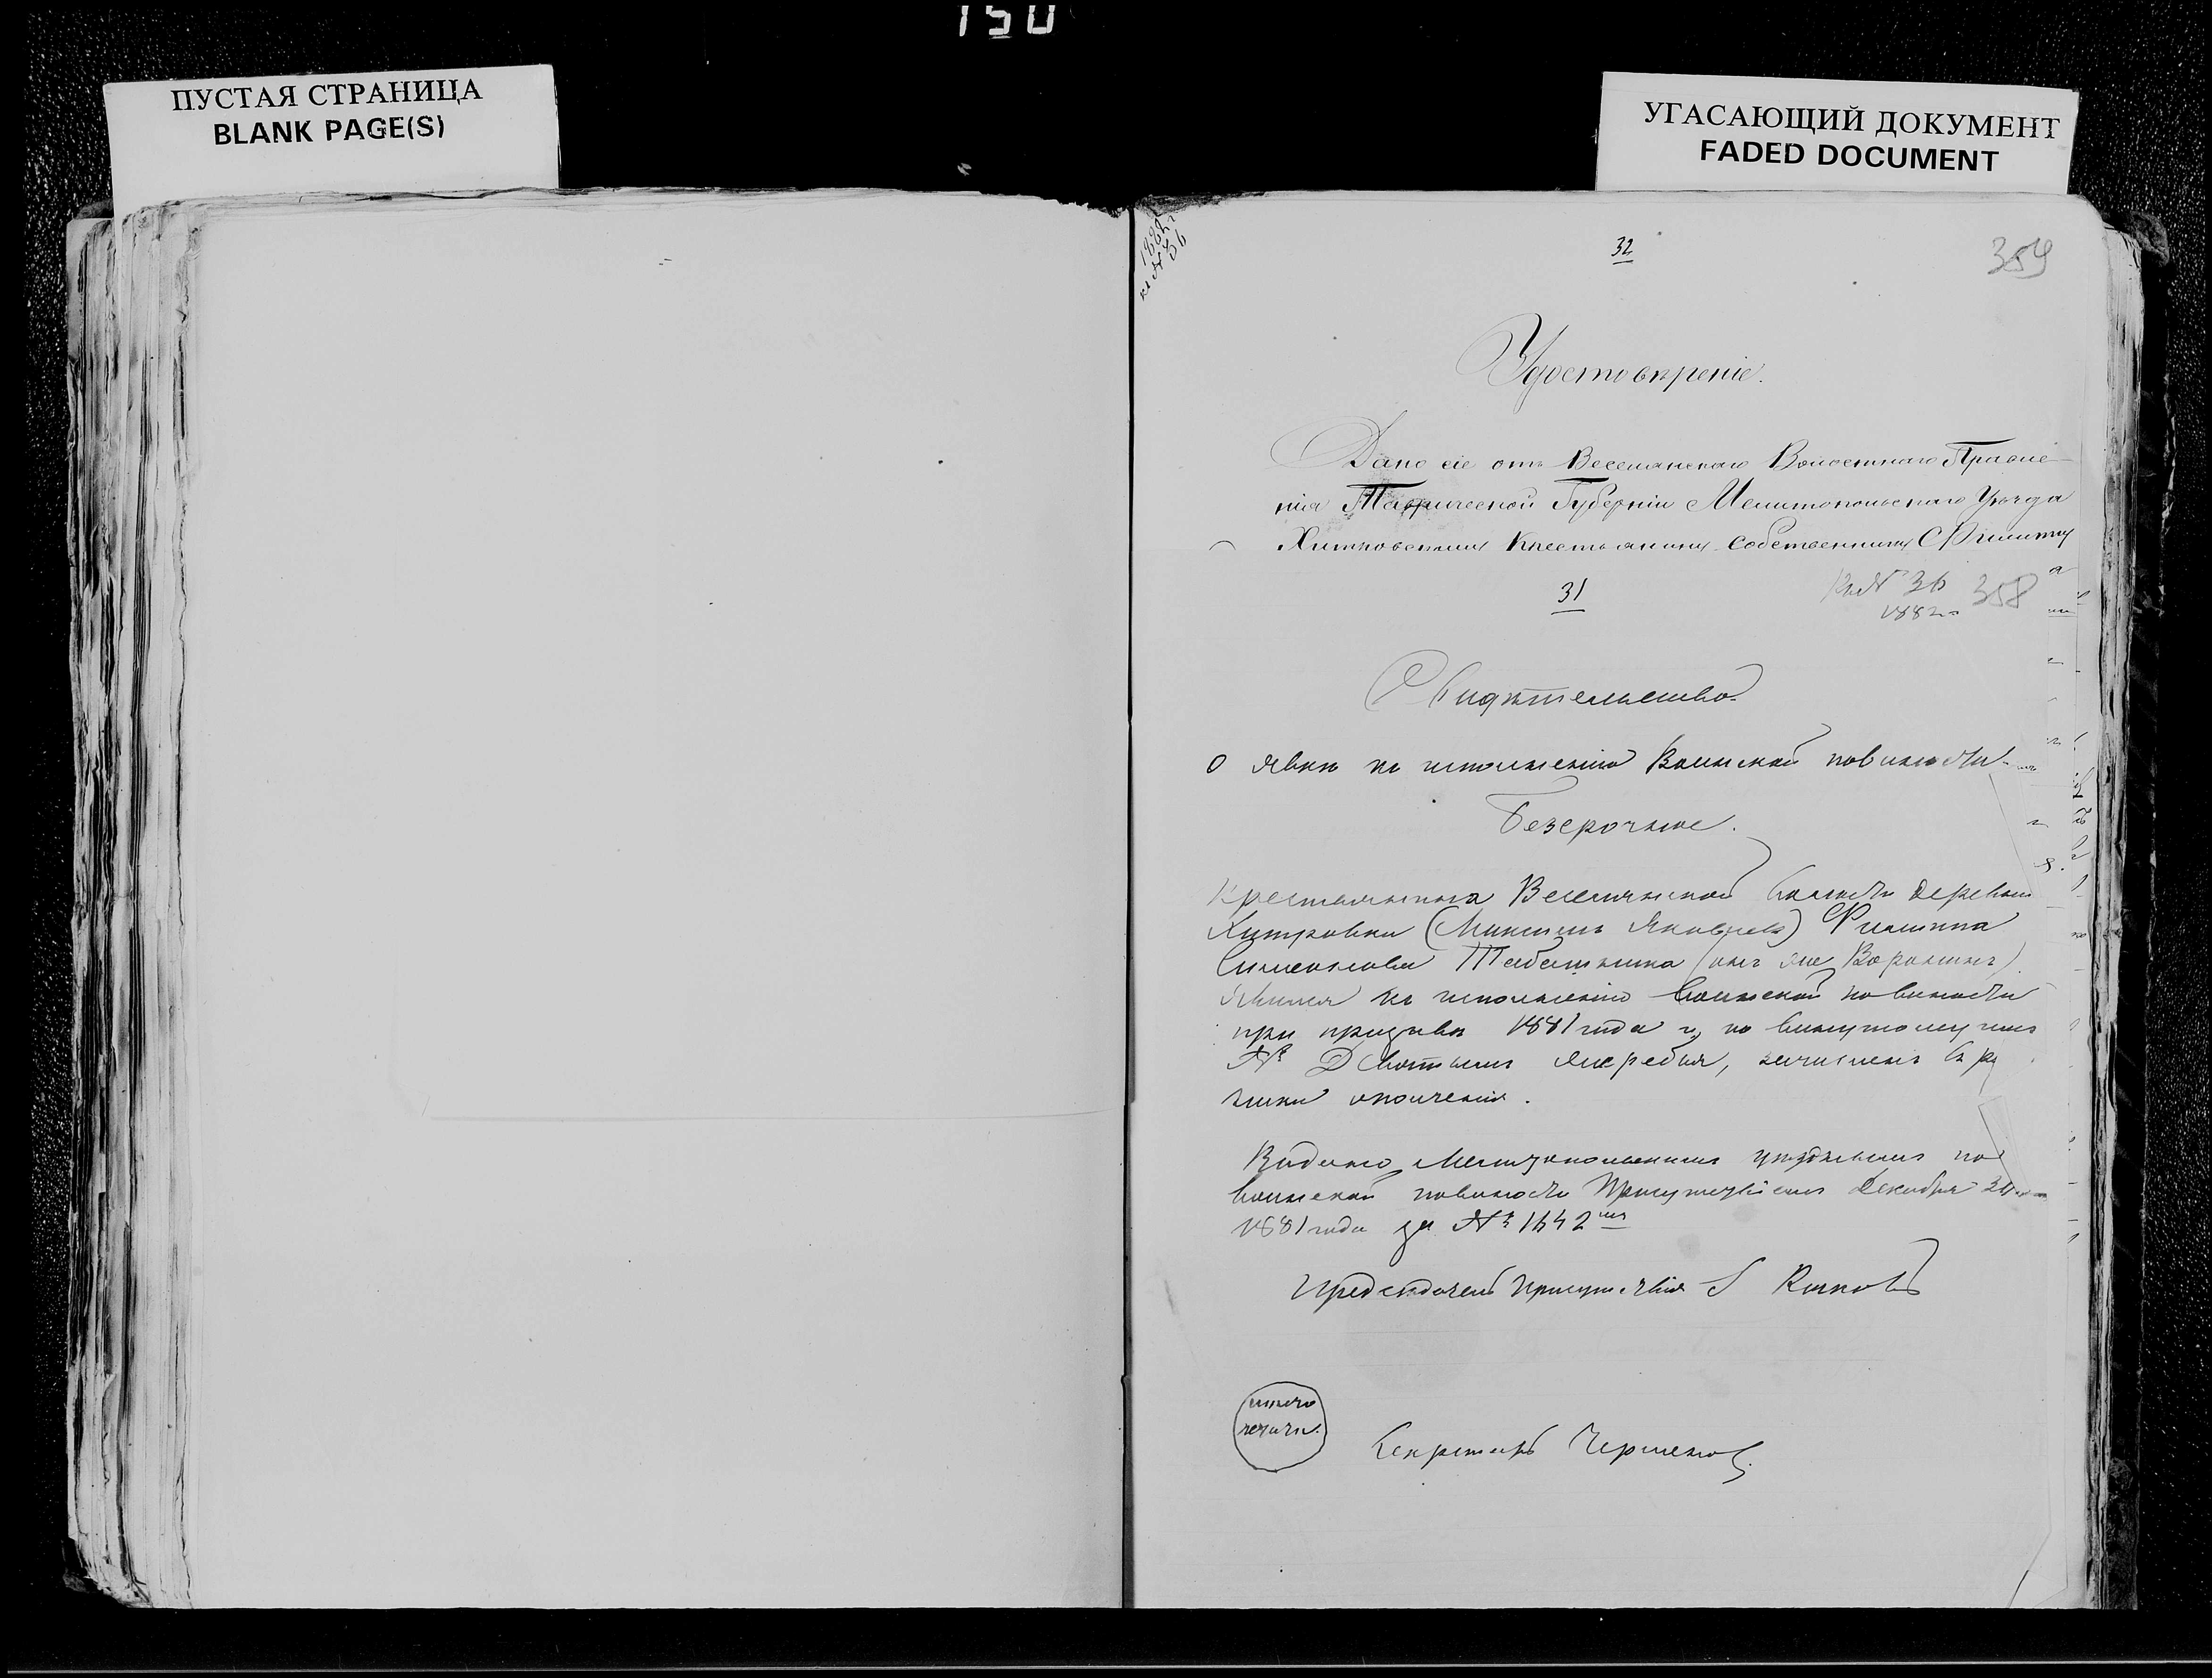 150
ПУСТАЯ СТРАНИЦА
BLANK PAGE(S)
УГАСАЮЩИЙ ДОКУМЕНТ
FADED DOCUMENT
1882 г
къ № 36
32
359
Удостовѣреніе.
Дано сіе отъ Веселянскаго Волостнаго Правле-
нія Таврической Губерніи Мелитопольскаго Уѣзда
Крестьянину Собственнику Филипу
31
Къ № 36 358
1882 г
Свидѣтельство
о явкѣ къ исполненію Воинской повинности
Безсрочное.
Крестьянинъ Веселянской волости деревни
Хитровки (Максимъ Яковлевъ) Филиппъ
Симеоновъ (онъ же Воронинъ)
явился къ исполненію воинской повинности
при призывѣ 1881 года и, по вынутому имъ
№ жребія, зачисленъ въ ра
тники ополченія.
Выдано Мелитопольскимъ уѣзднымъ по
воинской повинности Присутствіемъ Декабря
1881 года за № 1642
Предсѣдатель Присутствія
мѣсто
печати.
Секретарь